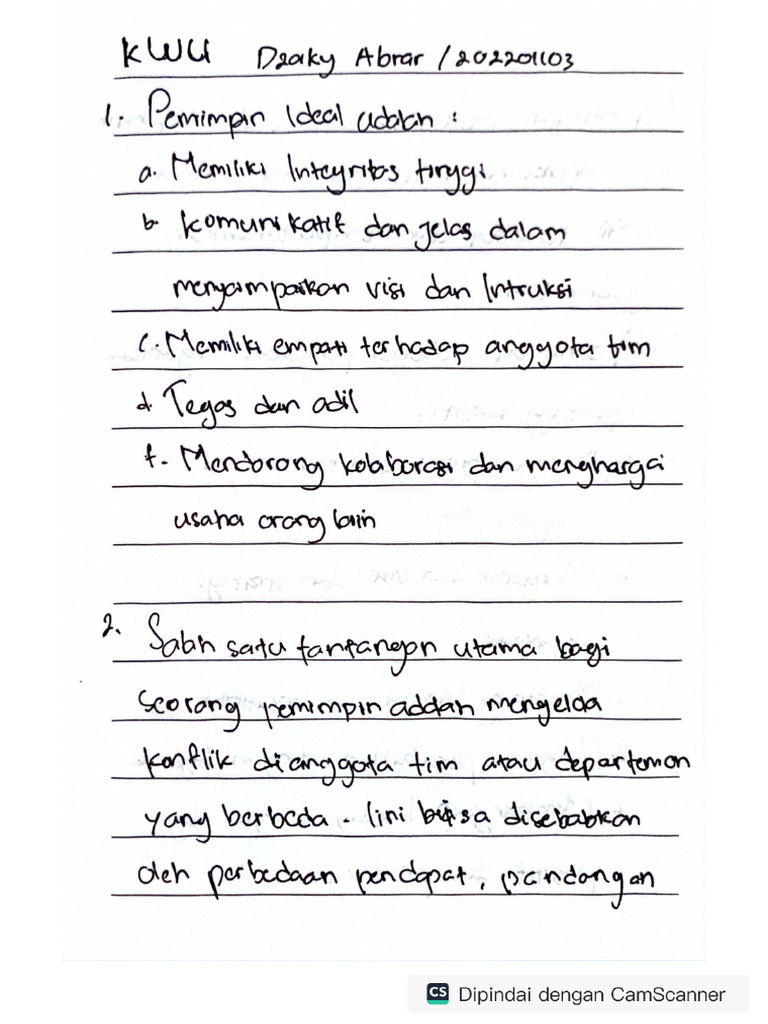 KWU Dzaky Abrar / 202201103
1. Pemimpin Ideal adalah :
a. Memiliki Integritas tinggi
b. Komunikatif dan jelas dalam
menyampaikan visi dan Intruksi
c. Memiliki empati terhadap anggota tim
d. Tegas dan adil
f. Mendorong kolaborasi dan menghargai
usaha orang lain
2. Salah satu tantangan utama bagi
seorang pemimpin adalah mengelola
konflik di anggota tim atau departemen
yang berbeda. Iini bisa disebabkan
oleh perbedaan pendapat, pandangan
CS Dipindai dengan CamScanner